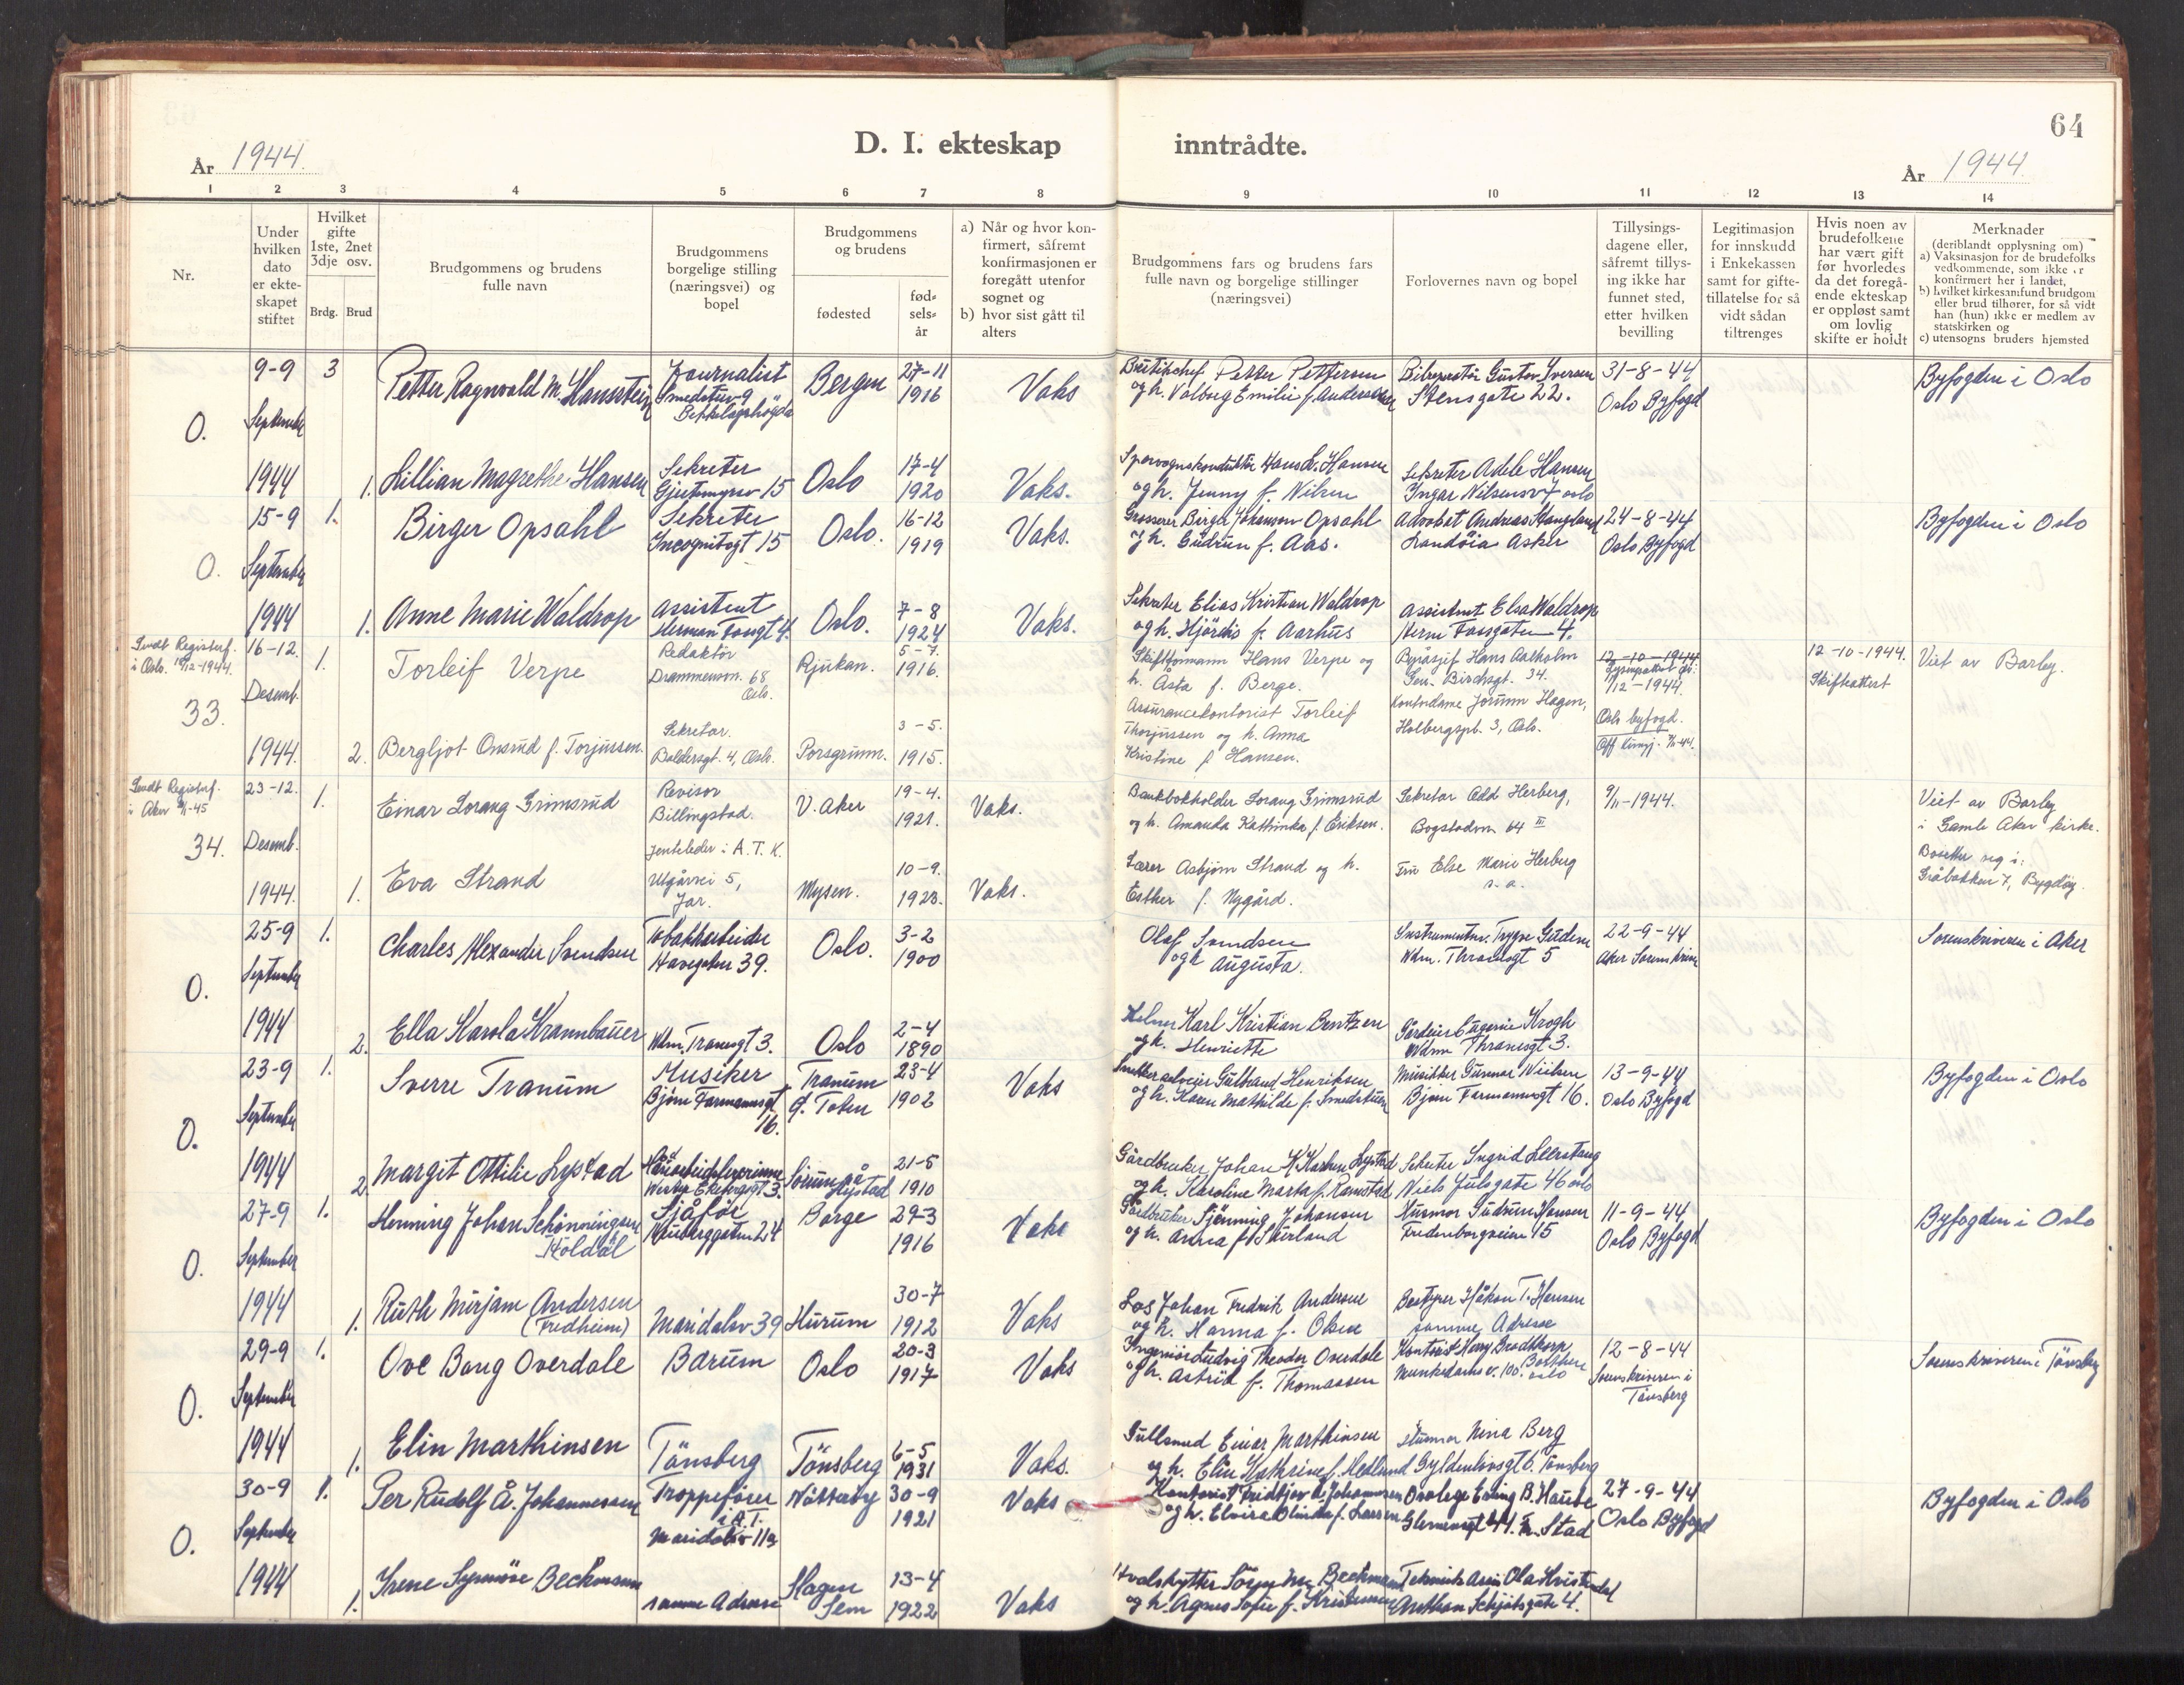 64
D. I. ekteskap inntrådte.
År 1944.
År 1944.
1 2 3 4 5 6 7 8 9 10 11 12 13 14
Nr.
Under hvilken dato er ekteskapet stiftet
Hvilket gifte 1ste, 2net 3dje osv.
Brdg. Brud
Brudgommens og brudens fulle navn
Brudgommens borgelige stilling (næringsvei) og bopel
Brudgommens og brudens
fødested
fødselsår
a) Når og hvor konfirmert, såfremt konfirmasjonen er foregått utenfor sognet og
b) hvor sist gått til alters
Brudgommens fars og brudens fars fulle navn og borgelige stillinger (næringsvei)
Forlovernes navn og bopel
Tillysingsdagene eller, såfremt tillysing ikke har funnet sted, etter hvilken bevilling
Legitimasjon for innskudd i Enkekassen samt for giftetillatelse for så vidt sådan tiltrenges
Hvis noen av brudefolkene har vært gift før hvorledes da det foregående ekteskap er oppløst samt om lovlig skifte er holdt
Merknader
(deriblandt opplysning om)
a) Vaksinasjon for de brudefolks vedkommende, som ikke er konfirmert her i landet,
b) hvilket kirkesamfund brudgom eller brud tilhører, for så vidt han (hun) ikke er medlem av statskirken og
c) utensogns bruders hjemsted
O. 9-9 September 1944
3 Petter Ragnvald M Hansstein Journalist Bergen 27-11 1916 Vaks
og h. Valborg Emilie f. Andersen Gustav Iversen Stensgate 22. 31-8-44 Oslo Byfogd Byfogden i Oslo
1. Lillian Magrethe Hansen Sekretær 15 Oslo 17-4 1920 Vaks.
Hansen og h. Jenny f. Nilsen Sekretær Adele Hansen Oslo
O. 15-9 September 1944
1. Birger Opsahl Sekretær Incognitogt 15 Oslo. 16-12 1919 Vaks.
Grosserer Birger Johanson Opsahl og h. Gudrun f. Aas. Advokat Andreas Landöia Asker 24-8-44 Oslo Byfogd Byfogden i Oslo
1. Anne Marie Waldrop Assistent Herman Fossgt 4. Oslo. 7-8 1924 Vaks.
Sekretær Elias Kristian Waldrop og h. Hjördis f. Aarhus Assistent Elsa Waldrop Herm Fossgaten 4.
Sendt Registerf. i Oslo. 19/12-1944.
33. 16-12. Desemb. 1944.
1. Torleif Verpe Redaktör Drammensvn. 68 Oslo. Rjukan. 5-7. 1916.
Hans Verpe og h. Åsta f. Berge. Byråsjef Hans Aasholm Sen. Birchsgt. 34. 12-10-1944 /12-1944. Oslo byfogd. 12-10-1944. Skifteattest Viet av Barby.
2. Bergljot Onsrud f. Torjussen. Sekretær. Baldersgt. 4, Oslo. Porsgrunn. 3-5. 1915.
Assurancekontorist Torleif Thorjussen og h. Anna Kristine f Hansen. Kontordame Jorunn Hagen, Holbergspl. 3, Oslo.
Sendt Registerf. i Aker
34. 23-12. Desemb. 1944.
1. Einar Lorang Grimsrud Revisor Billingstad. V. Aker 19-4. 1921. Vaks.
Bankbokholder Lorang Grimsrud og h. Amanda Kathinka f. Eriksen. Sekretær Odd Herberg, Bogstadvn 64 III 9/11-1944. Viet av Barby i Gamle Aker kirke.
Bosetter seg i: Gråbakken 7, Bygdöy.
1. Eva Strand Jenteleder i A. T. K. Ulgårvei 5, Jar. Mysen. 10-9. 1923. Vaks.
Lærer Asbjørn Strand og h. Esther f. Nygård. Fru Else Marie Herberg s. a.
O. 25-9 September 1944
1. Charles Alexander Svendsen Tobakkarbeider Havegaten 39. Oslo. 3-2 1900
Olaf Svendsen og h Augusta. Trygve Gudem Wilm. Thranesgt 5 22-9-44 Aker Sorenskriver Sorenskriveren i Aker
2. Ella Karola Krannbauer Wilm. Tranesgt 3. Oslo 2-4 1890
Karl Kristian Bentzen og h. Henriette Eugenie Krogh Wilm Thranesgt 3.
O. 23-9 September 1944
1. Sverre Tranum Musiker Bjørn Farmannsgt 16. Tranum Ø. Toten 23-4 1902 Vaks
Gulbrand Henriksen og h. Karen Mathilde f. Smedstuen Musikker Gunnar Nielsen Bjørn Farmannsgt 16. 13-9-44 Oslo Byfogd Byfogden i Oslo
2. Margit Ottilie Lystad Håndarbeidslærerinne 21-5 1910
Gårdbruker Johan Lystad og h. Karoline Marta f. Ramstad Sekretær Ingrid Niels Julsgate 46 Oslo
O. 27-9 September 1944
1. Henning Johan Schönningsen Koldål Sjåför 24 Borge 29-3 1916 Vaks
Gårdbruker Johansen og h. Anna f. Husmor Gudrun Hansen Fredensborgveien 15 11-9-44 Oslo Byfogd Byfogden i Oslo
1. Ruth Mirjam Andersen (Fredheim) Maridalsv 39 Hurum 30-7 1912 Vaks
Los Johan Fredrik Andersen og h. Hanna f. Olsen Bestyrer Håkon T. Hansen samme Adresse
O. 29-9 September 1944
1. Ove Bang Overdale Bærum Oslo 20-3 1917 Vaks
Ingeniør Ludvig Theodor Overdale og h. Astrid f. Thomassen Kontorist Munkedamsv. 100. Oslo 12-8-44 Sorenskriveren i Tönsberg Sorenskriveren i Tönsberg
1. Elin Marthinsen Tönsberg Tönsberg 6-5 1931 Vaks.
Gullsmed Einar Marthinsen og h. Elin Kathrine f. Hedlund Husmor Nina Berg Gyldenlövsgt 6. Tønsberg
O. 30-9 September 1944
1. Per Rudolf Å. Johannessen Troppefører i A.T. Maridalsv 11a Nötteröy 30-9 1921 Vaks
Kontorist Fridtjov Johannessen og h. Elvira Olinda f. Larsen Erling B. Hauke 27-9-44 Oslo Byfogd Byfogden i Oslo
1. Irene Synnöve Beckmann samme Adresse Slagen Sem 13-4 1922 Vaks
Hvalskytter Beckmann og h. Agnes Sofie f. Kristensen Anthon Schjøtsgate 4.